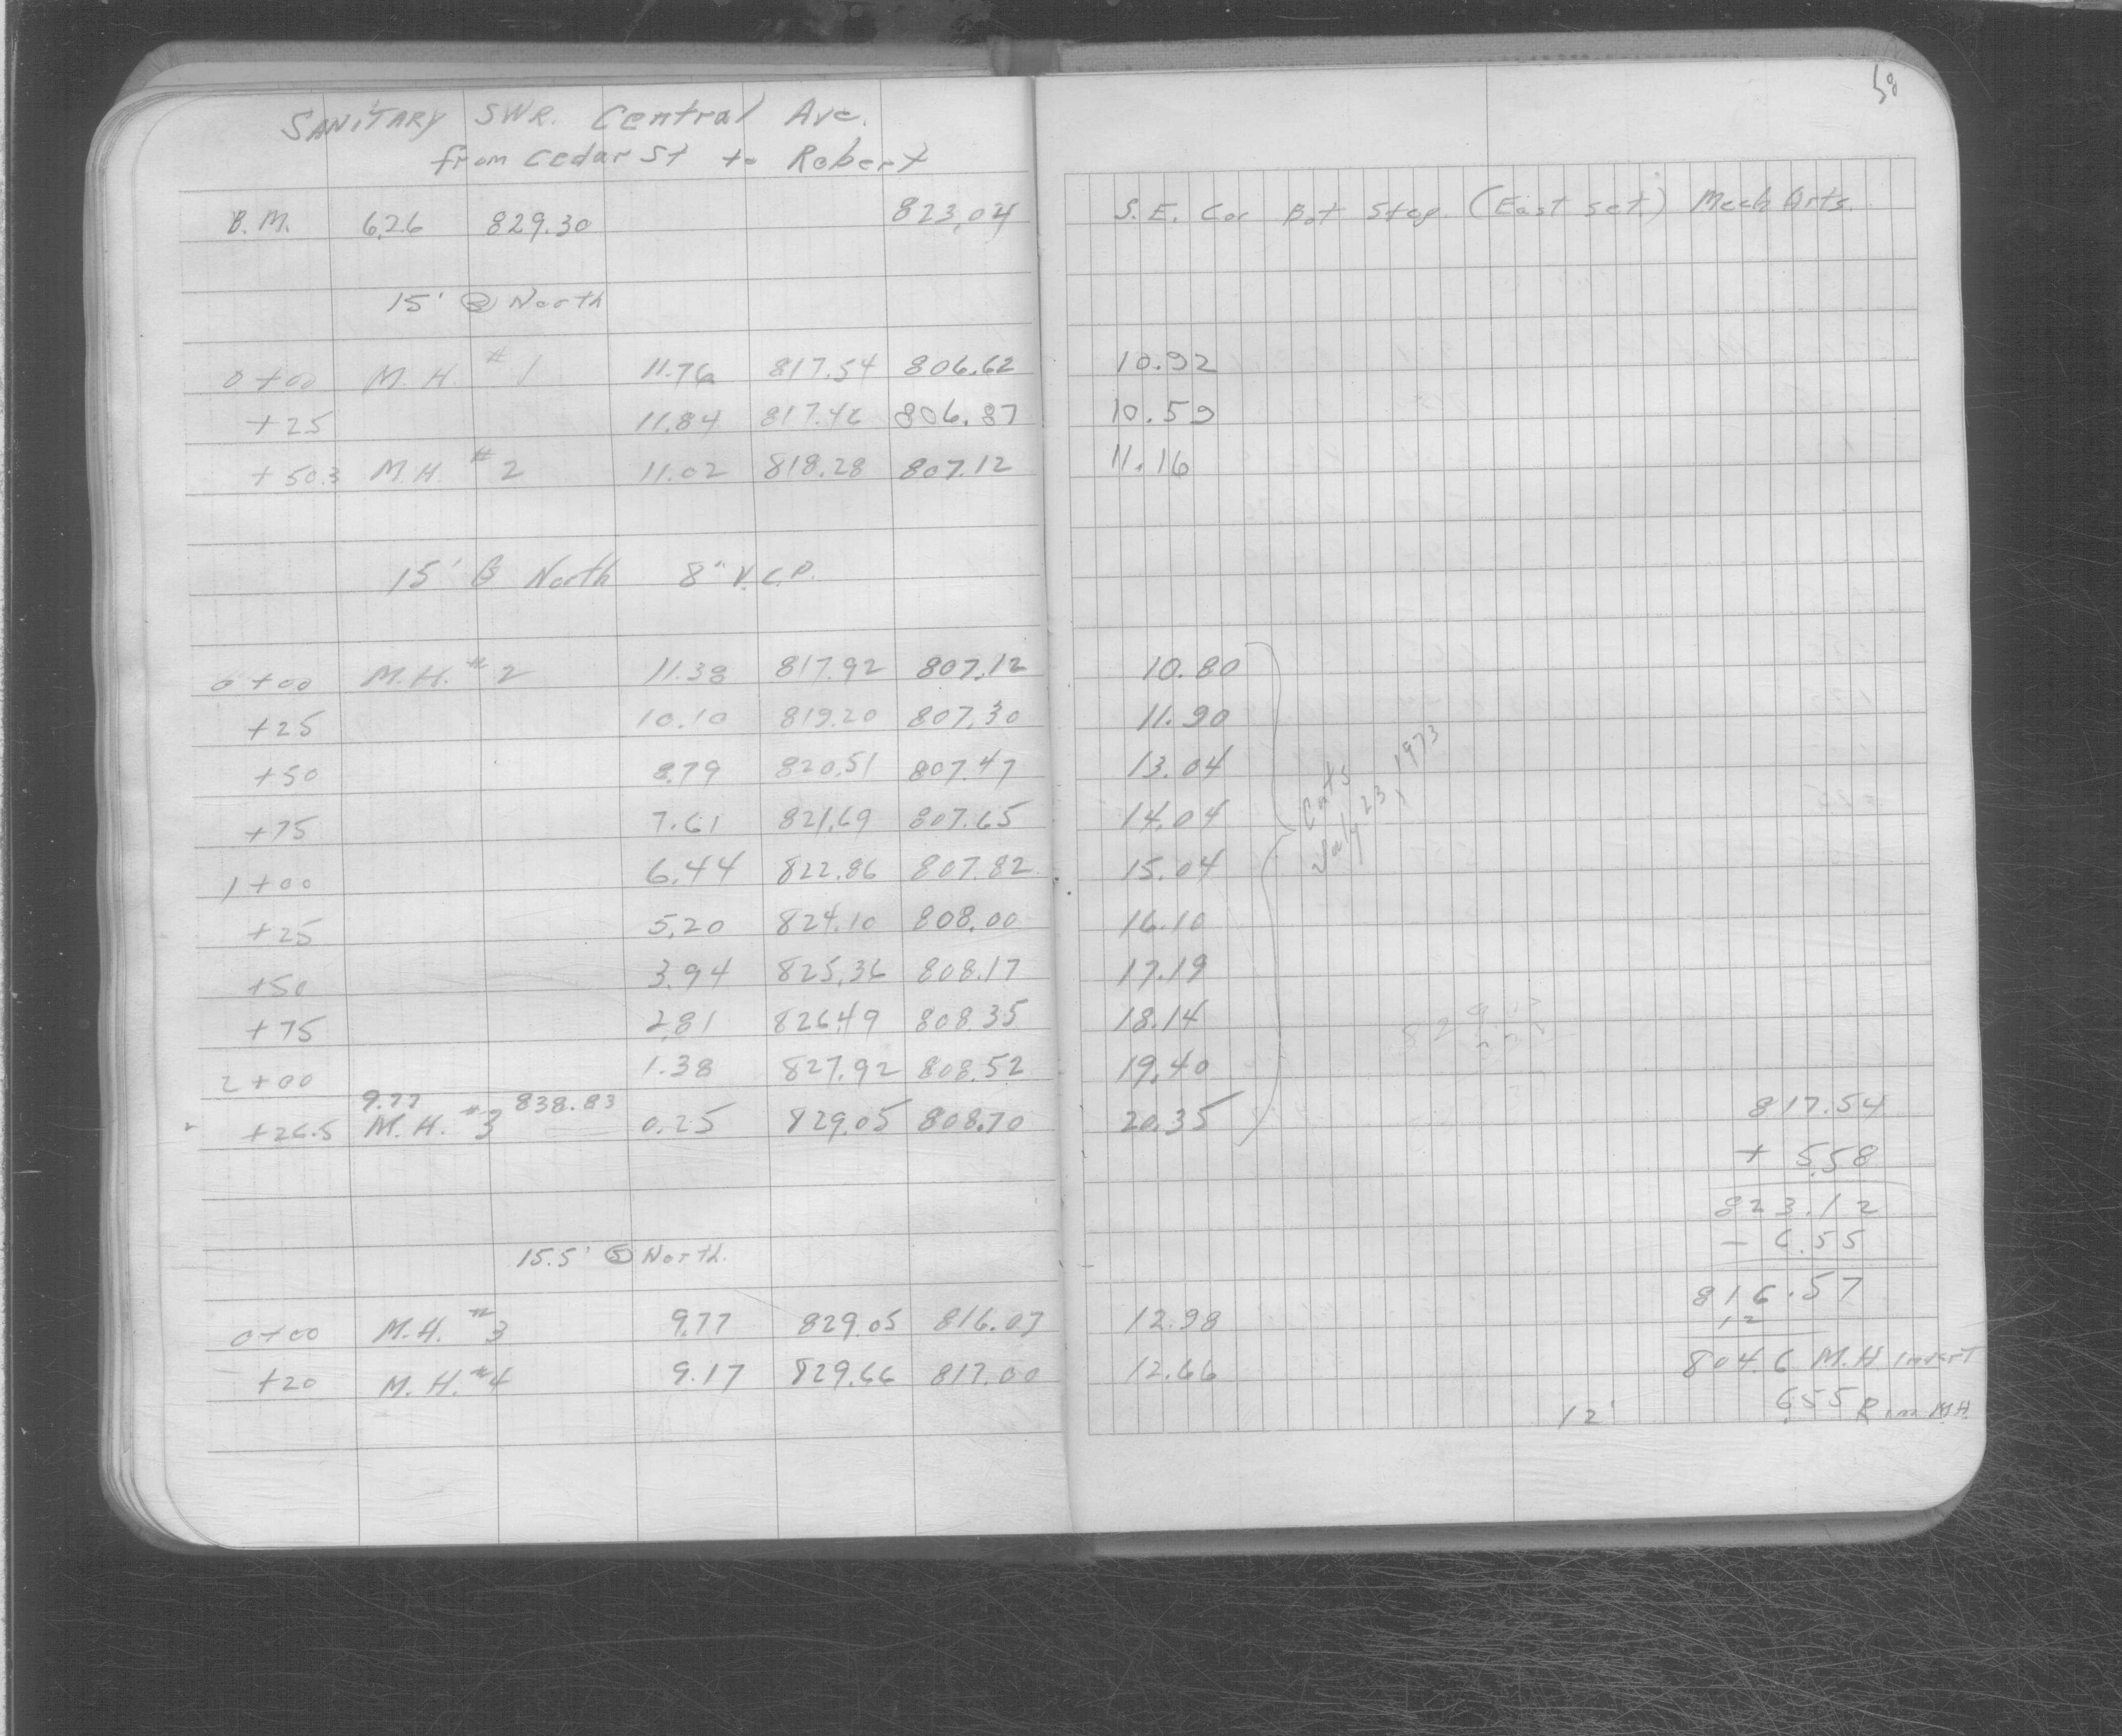 50
SANITARY SWR. Central Ave.
from Cedar St to Robert
B.M. 6.26 829.30 823.04 S.E. Cor Bot Step (East set.) Mech Arts.
15' North
0+00 M.H. #1 11.76 817.54 806.62 10.92
+25 11.84 817.46 806.87 10.59
+50.3 M.H. #2 11.02 818.28 807.12 11.16
15' North 8" V.C.P.
0+00 M.H. #2 11.38 817.92 807.12 10.80
+25 10.10 819.20 807.30 11.90
+50 8.79 820.51 807.47 13.04
+75 7.61 821.69 807.65 14.04
Cuts
July 23, 1973
1+00 6.44 822.86 807.82 15.04
+25 5.20 824.10 808.00 16.10
+50 3.94 825.36 808.17 17.19
+75 2.81 826.49 808.35 18.14
2+00 1.38 827.92 808.52 19.40
9.77 838.83
+26.5 M.H. #3 0.25 829.05 808.70 20.35
817.54
+ 5.58
823.12
- 6.55
816.57
12
804.6 M.H. invert
6.55 Rim M.H.
12'
15.5' North.
0+00 M.H. #3 9.77 829.05 816.07 12.98
+20 M.H. #4 9.17 829.66 817.00 12.66